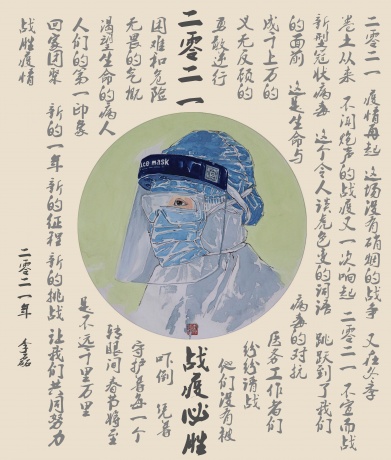 二零二一 疫情再起 这场没有硝烟的战争 又在冬季
卷土从来 不闻炮声的战疫又一次响起 二零二一 不宣而战
新型冠状病毒 这个令人谈虎色变的词语 跳跃到了我们
的面前 这是生命与 病毒的对抗
成千上万的 医务工作者们
义无反顾的 纷纷请战
勇敢逆行 他们没有被
二零二一 战疫必胜
困难和危险 吓倒 凭着
无畏的气概 守护着每一个
渴望生命的病人 转眼间春节将至
人们的第一印象 是不远千里万里
回家团聚 新的一年 新的征程 新的挑战 让我们共同努力
战胜疫情
二零二一年
mask